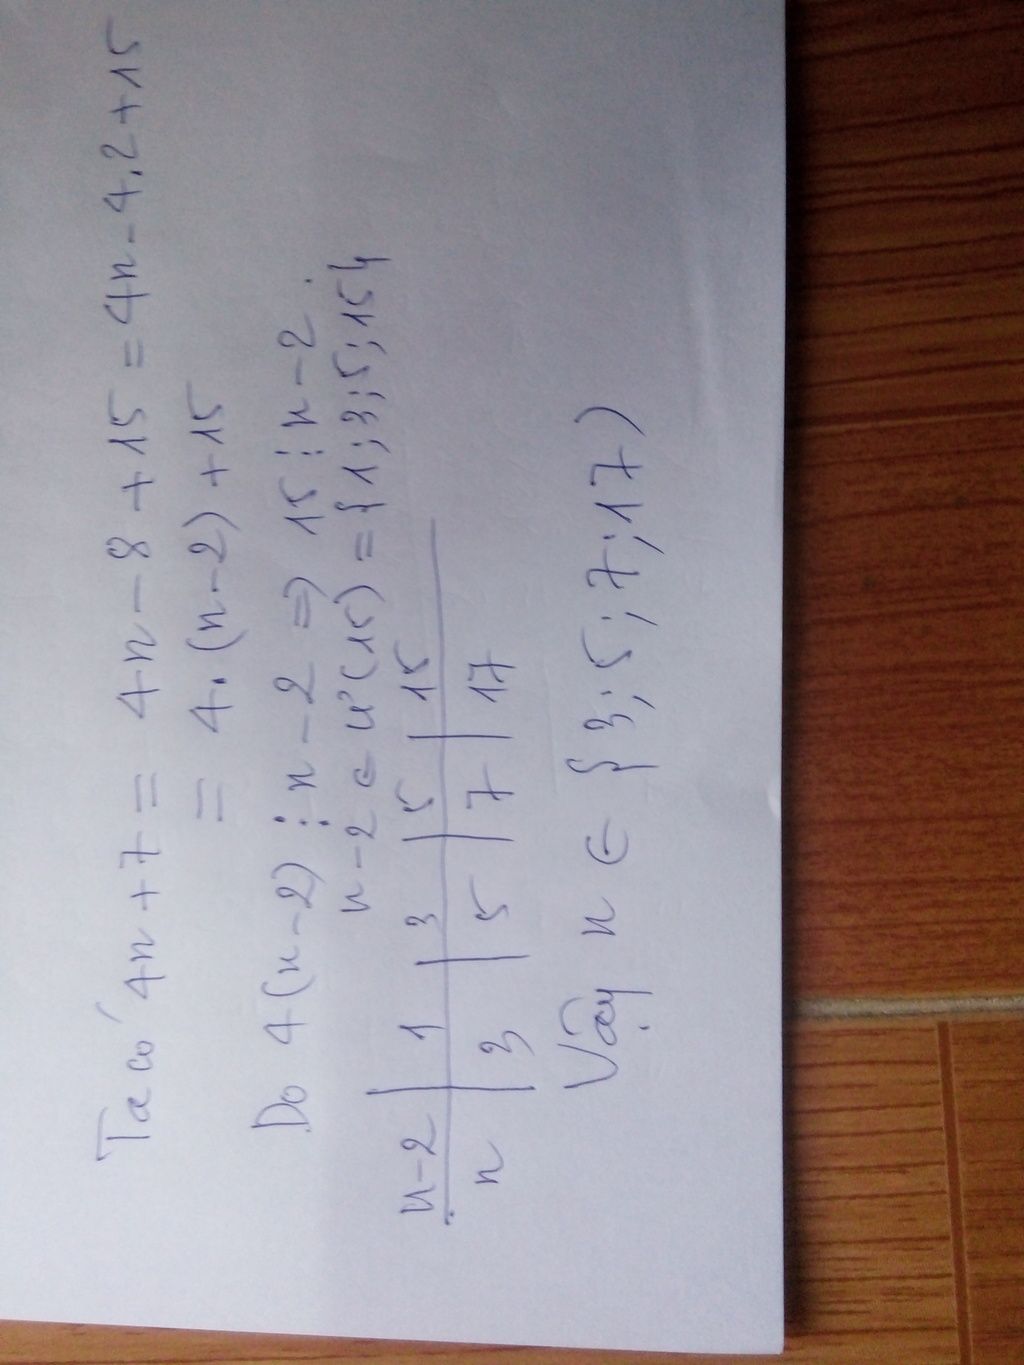 Ta có 4n + 7 = 4n - 8 + 15 = 4n - 4.2 + 15
= 4.(n-2) + 15
Do 4(n-2) ⋮ n-2 => 15 ⋮ n-2.
n-2 ∈ Ư(15) = {1;3;5;15}
n-2 | 1 | 3 | 5 | 15
n | 3 | 5 | 7 | 17
Vậy n ∈ {3;5;7;17)